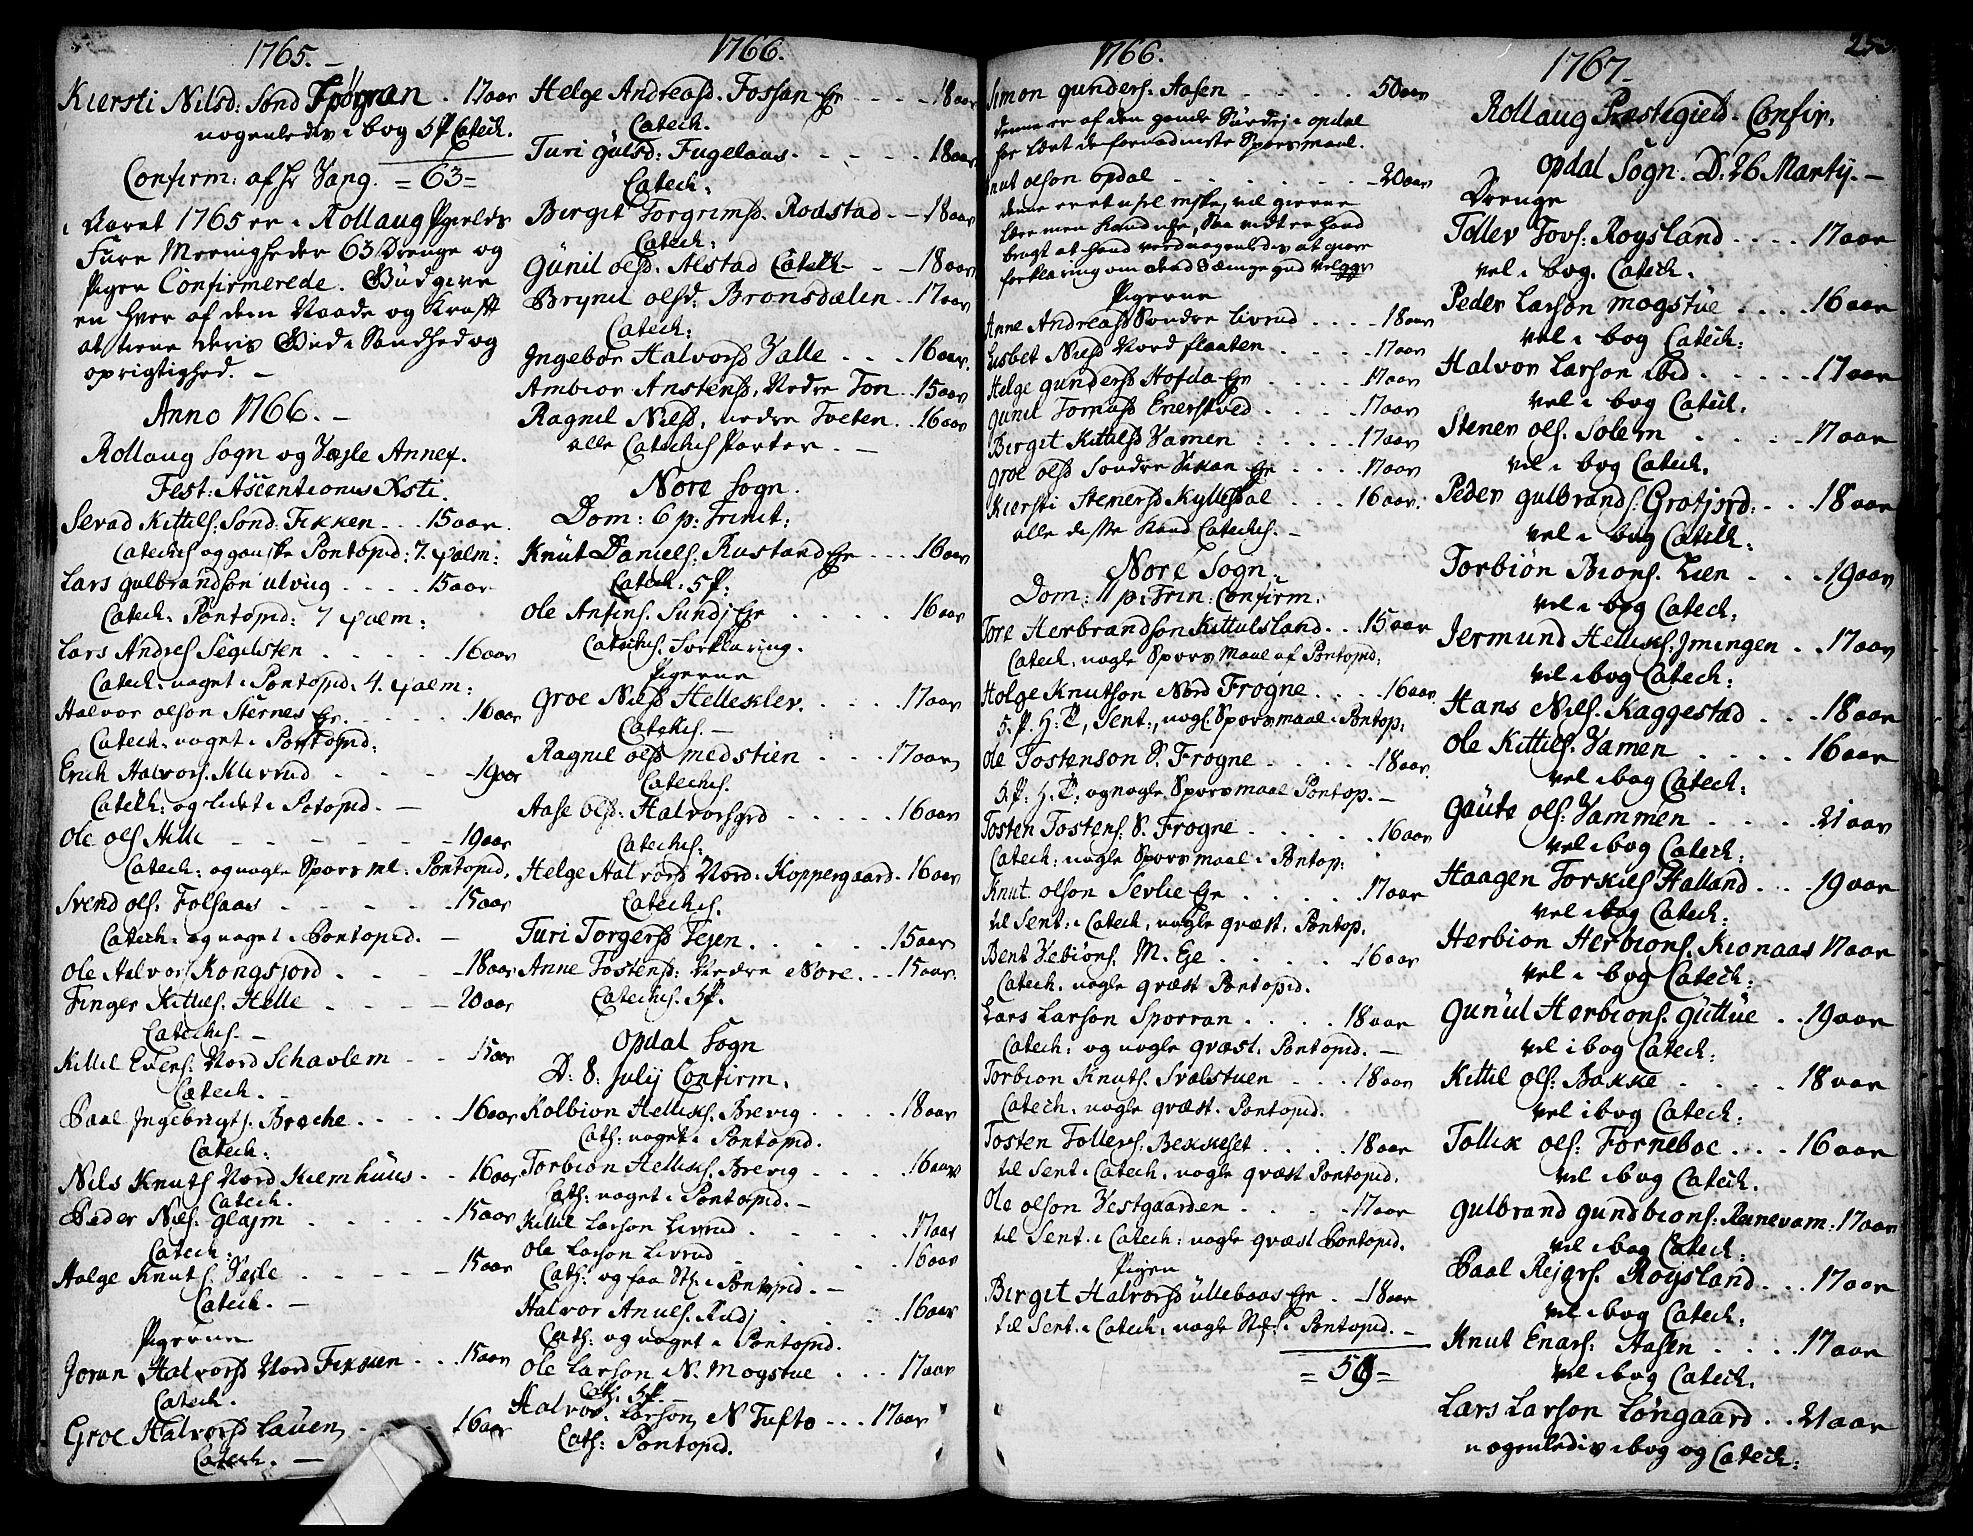 1765.
Kiersti Nilsd: Sønd Spørran . 17 aar
nogenledis i bog 5 P. Catech.
Confirm: af Hr Vang. = 63 =
i Aaret 1765 er i Rollaug Pgields
Fiire Meenigheder 63 Drenge og
Piger Confirmerede. Gud give
en hver af dem Naade og Krafft
at tiene deris Gud i Sandhed og
oprigtighed. –
Anno 1766. –
Rollaug Sogn og Vegle Annex.
Fest: Ascentionis Xsti.
Sevad Kittils: Sønd: Fekken . . . 15 aar.
Cateches og ganske Pontopid: 7 psalm:
Lars gulbrandsøn ulvug . . . . 15 aar
Catech. Pontopid: 7 psalm:
Lars Andres Segelsten . . . . . 16 aar
Catech. noget i Pontopid. 4. psalm:
Halvor olson Sternes Eje . . . . . 16 aar
Catech. noget i Pontopid:
Erich Halvors. Klevrud . . . . 19 aar
Catech: og lidet i Potopid. –
Ole ols Helle – – – – – 19 aar
Catech: og nogle Spørsml: Pontopid,
Svend ols: Folsaas – – – – 15 aar
Catech: og noget i Pontopid. –
Ole Halvors Kongsjord . . . . 18 aar
Finger Kittils. Helle . . . . 20 aar
Cateches. –
Kittil Evens: Nord Schavlem . . . 15 aar
Catech. –
Paal Ingebrigts: Brøche . . . . 16 aar
Catech:
Nils Knuts Nord Kiemhuus . . 16 aar
Catech.
Peder Nils. glajm . . . . . 15 aar
Catech.
Holge Knuts. Vegle . . . . . 15 aar
Catech. –
Pigerne
Joran Halvorsd Nord Fekken . . 15 aar
Catech.
Groe Halvorsd Lauen . . . 16 aar
Catech. –
1766.
Helge Andreasd. Fossan Eje . . . 18 aar
Catech.
Turi gulsd: Fugelaas . . . . . 18 aar
Catech:
Birgit Torgrimsd. Rodstad . – 18 aar
Catech:
Gunil olsd: Alstad Catech . . 18 aar
Brynil olsd: Bronsdalen . . 17 aar
Catech:
Ingebor Halvorsd Valle . . . 16 aar.
Ambior Anstensd, Nedre Ton . 15 aar
Ragnil Nilsd, nedre Tveten . . 16 aar
alle Cateches Parter. –
Nore Sogn.
Dom: 6 p: Trinit:
Knut Daniels: Rustand Eje . . . 16 aar
Catech: 5 P:
Ole Anfins: Sundj Eje . . . . . 16 aar
Cateches. Forklaring.
Pigerne
Groe Nilsd Helleklev. . . . . 17 aar
Cateches. –
Ragnil olsd medstien . . . 17 aar
Cateches.
Aase olsd: Halvorsgrd . . . . . 16 aar
Cateches:
Helge Halvorsd Nord: Koppergaard . 16 aar
Cateches.
Turi Torgersd Tejen . . . . . 15 aar
Anne Tostensd: Nedre Nore . . . 15 aar.
Cateches. 5 P.
Opdal Sogn
D: 8. Julij Confirm.
Kolbion Helliks. Brevig . . . . 18 aar
Cath: noget i Pontopid.
Torbion Helliks. Brevig . . . 16 aar
Cath: noget i Pontopid. –
Kittil Larson Livrud . . . . . 17 aar
Ole Larson Livrud . . . . 16 aar
Cath: og faa St: i Pontopid. –
Halvor Anuls. Rudj . . . . 16 aar
Cath: og noget i Pontopid.
Ole Larson N. Mogstue . . . 17 aar
Cath: 5 P.
Halvor Larson N Tufto . . . 17 aar
Cath: Pontopid.
1766.
Simon gunders. Aasen . . . . . 50 aar
denne er af den gamle Surdej i opdal
har lært de fornødenste Spørsmaal.
Knut olson opdal . . . . . . . 20 aar
denne er et usel mske, vil gierne
lære men Kand icke, Saa vidt er hand
bragt at hand veed nogenledis at giøre
forklaring om
Pigerne
Anne Andreasd Søndre Livrud . . . . 18 aar
Lisbet Nilsd Nordflaaten . . . . . 17 aar
Helge gundersd Hofda Eje . . . . 17 aar
Gunil Tomasd Enerstved . . . . 17 aar
Birgit Kittilsd Vamen . . . . . 17 aar
Groe olsd Søndre Eje . . . 17 aar
Kiersti Stenersd Kyllesdal . . . 16 aar.
alle disse Kand Cateches. –
Nore Sogn
Dom: 11 p: Trin: Confirm.
Tore Herbrandson Kittulsland . . 15 aar
Catech, nogle Spørsmaal af Pontopid,
Holge Knutson Nord Frogne . . . . 16 aar.
5. P. H: T, Sent:, nogl Spørsmaal i Pontop,
Ole Tostenson S. Frogne . . . . 18 aar.
5. P. H. T: og nogle Spørsmaal Pontop. –
Tosten Tostens: S. Frogne . . . . . 16 aar
Catech: nogle Spørsmaal i Pontop:
Knut olson Sevlie Eje . . . . . 17 aar
til Sent: i Catech, nogle qvæst. Pontop,
Bent Vebions. M. Eje . . . . . 16 aar
Catech. nogle qvæst Pontopid.
Lars Larson Sporran . . . . 18 aar
Catech: og nogle qvæst. Pontopid. –
Torbion Knuts. Svalstuen . . . 18 aar
Catech. nogle qvæst. Pontopid.
Tosten Tollevs: Bekkeset . . . . 18 aar
til Sent i Catech. nogle qvæst Pontopid.
Ole olson Vestgaarden . . . . 17 aar
til Sent. i Catech: nogle qvæst Pontopid.
Pigen
Birgit Halvorsd ullebaas Eje . 18 aar
til Sent. i Catech. nogle i Pontopid. –
= 59 =
1767.
Rollaug Præstigield Confir.
Opdal Sogn. D. 26 Martij. –
Drenge
Tollev Tovs: Roysland . . . . 17 aar
vel i bog. Catech.
Peder Larson mogstue . . . 16 aar
vel i bog Catech:
Halvor Larson ibid . . . . . 17 aar
vel i bog Catech.
Stener ols. Solem . . . . . 17 aar
vel i bog Catech.
Peder gulbrands. Grotjord: . . 18 aar
vel i bog Catech:
Torbiøn Bions. Lien . . . 19 aar
vel i bog Catech:
Jermund Helliks. Imingen . 17 aar
vel i bog Catech:
Hans Nils. Kaggestad . . . 18 aar
Ole Kittils. Vamen . . . . . 16 aar
vel i bog Catech:
Gaute ols: Vammen . . . . 21 aar
vel i bog Catech:
Haagen Torkils Halland . . . 19 aar
vel i bog Catech:
Herbion Herbions. Kionaas 17 aar
vel i bog Catech:
Gunul Herbions. guttue . . 19 aar
vel i bog Catech:
Kittil ols: Bakke . . . . . 18 aar
vel i bog Catech:
Tollik ols: Forneboe . . . 16 aar
vel i bog Catech.
Gulbrand gundbions: Rennevam: 17 aar
vel i bog Catech:
Paal Rejers. Roysland . . . 17 aar
vel i bog Catech:
Knut Enars: Aasen . . . . 17 aar
vel i bog Catech.
Lars Larson Løngaard . . 21 aar
nogenledis i bog og Catech: